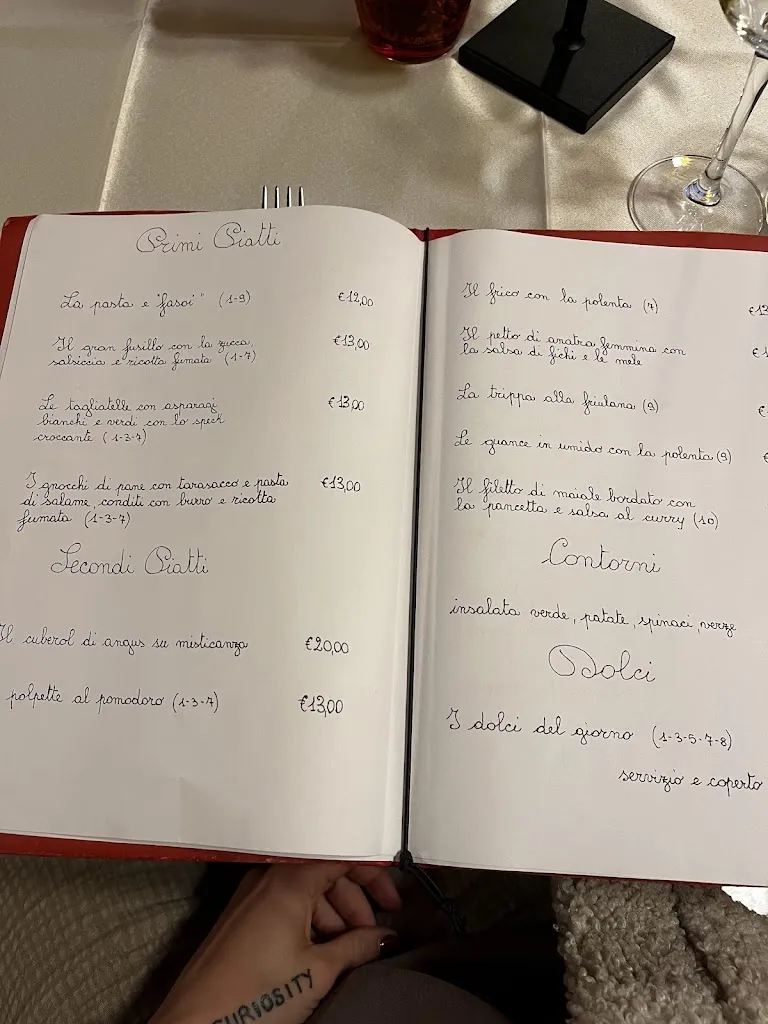 Primi Piatti
La pasta e "fasoi" (1-9) €12,00
Il gran fusillo con la zucca, €13,00
salsiccia e ricotta fumata (1-7)
Le tagliatelle con asparagi €13,00
bianchi e verdi con lo speck
croccante (1-3-7)
I gnocchi di pane con tarasacco e pasta €13,00
di salame, conditi con burro e ricotta
fumata (1-3-7)
Secondi Piatti
Il cuberol di angus su misticanza €20,00
polpette al pomodoro (1-3-7) €13,00
Il frico con la polenta (7) €13
Il petto di anatra femmina con €1
la salsa di fichi e le mele
La trippa alla friulana (9) €
Le guance in umido con la polenta (9) €
Il filetto di maiale bordato con
la pancetta e salsa al curry (10)
Contorni
insalata verde, patate, spinaci, verze
Dolci
I dolci del giorno (1-3-5-7-8)
servizio e coperto
CURIOSITY